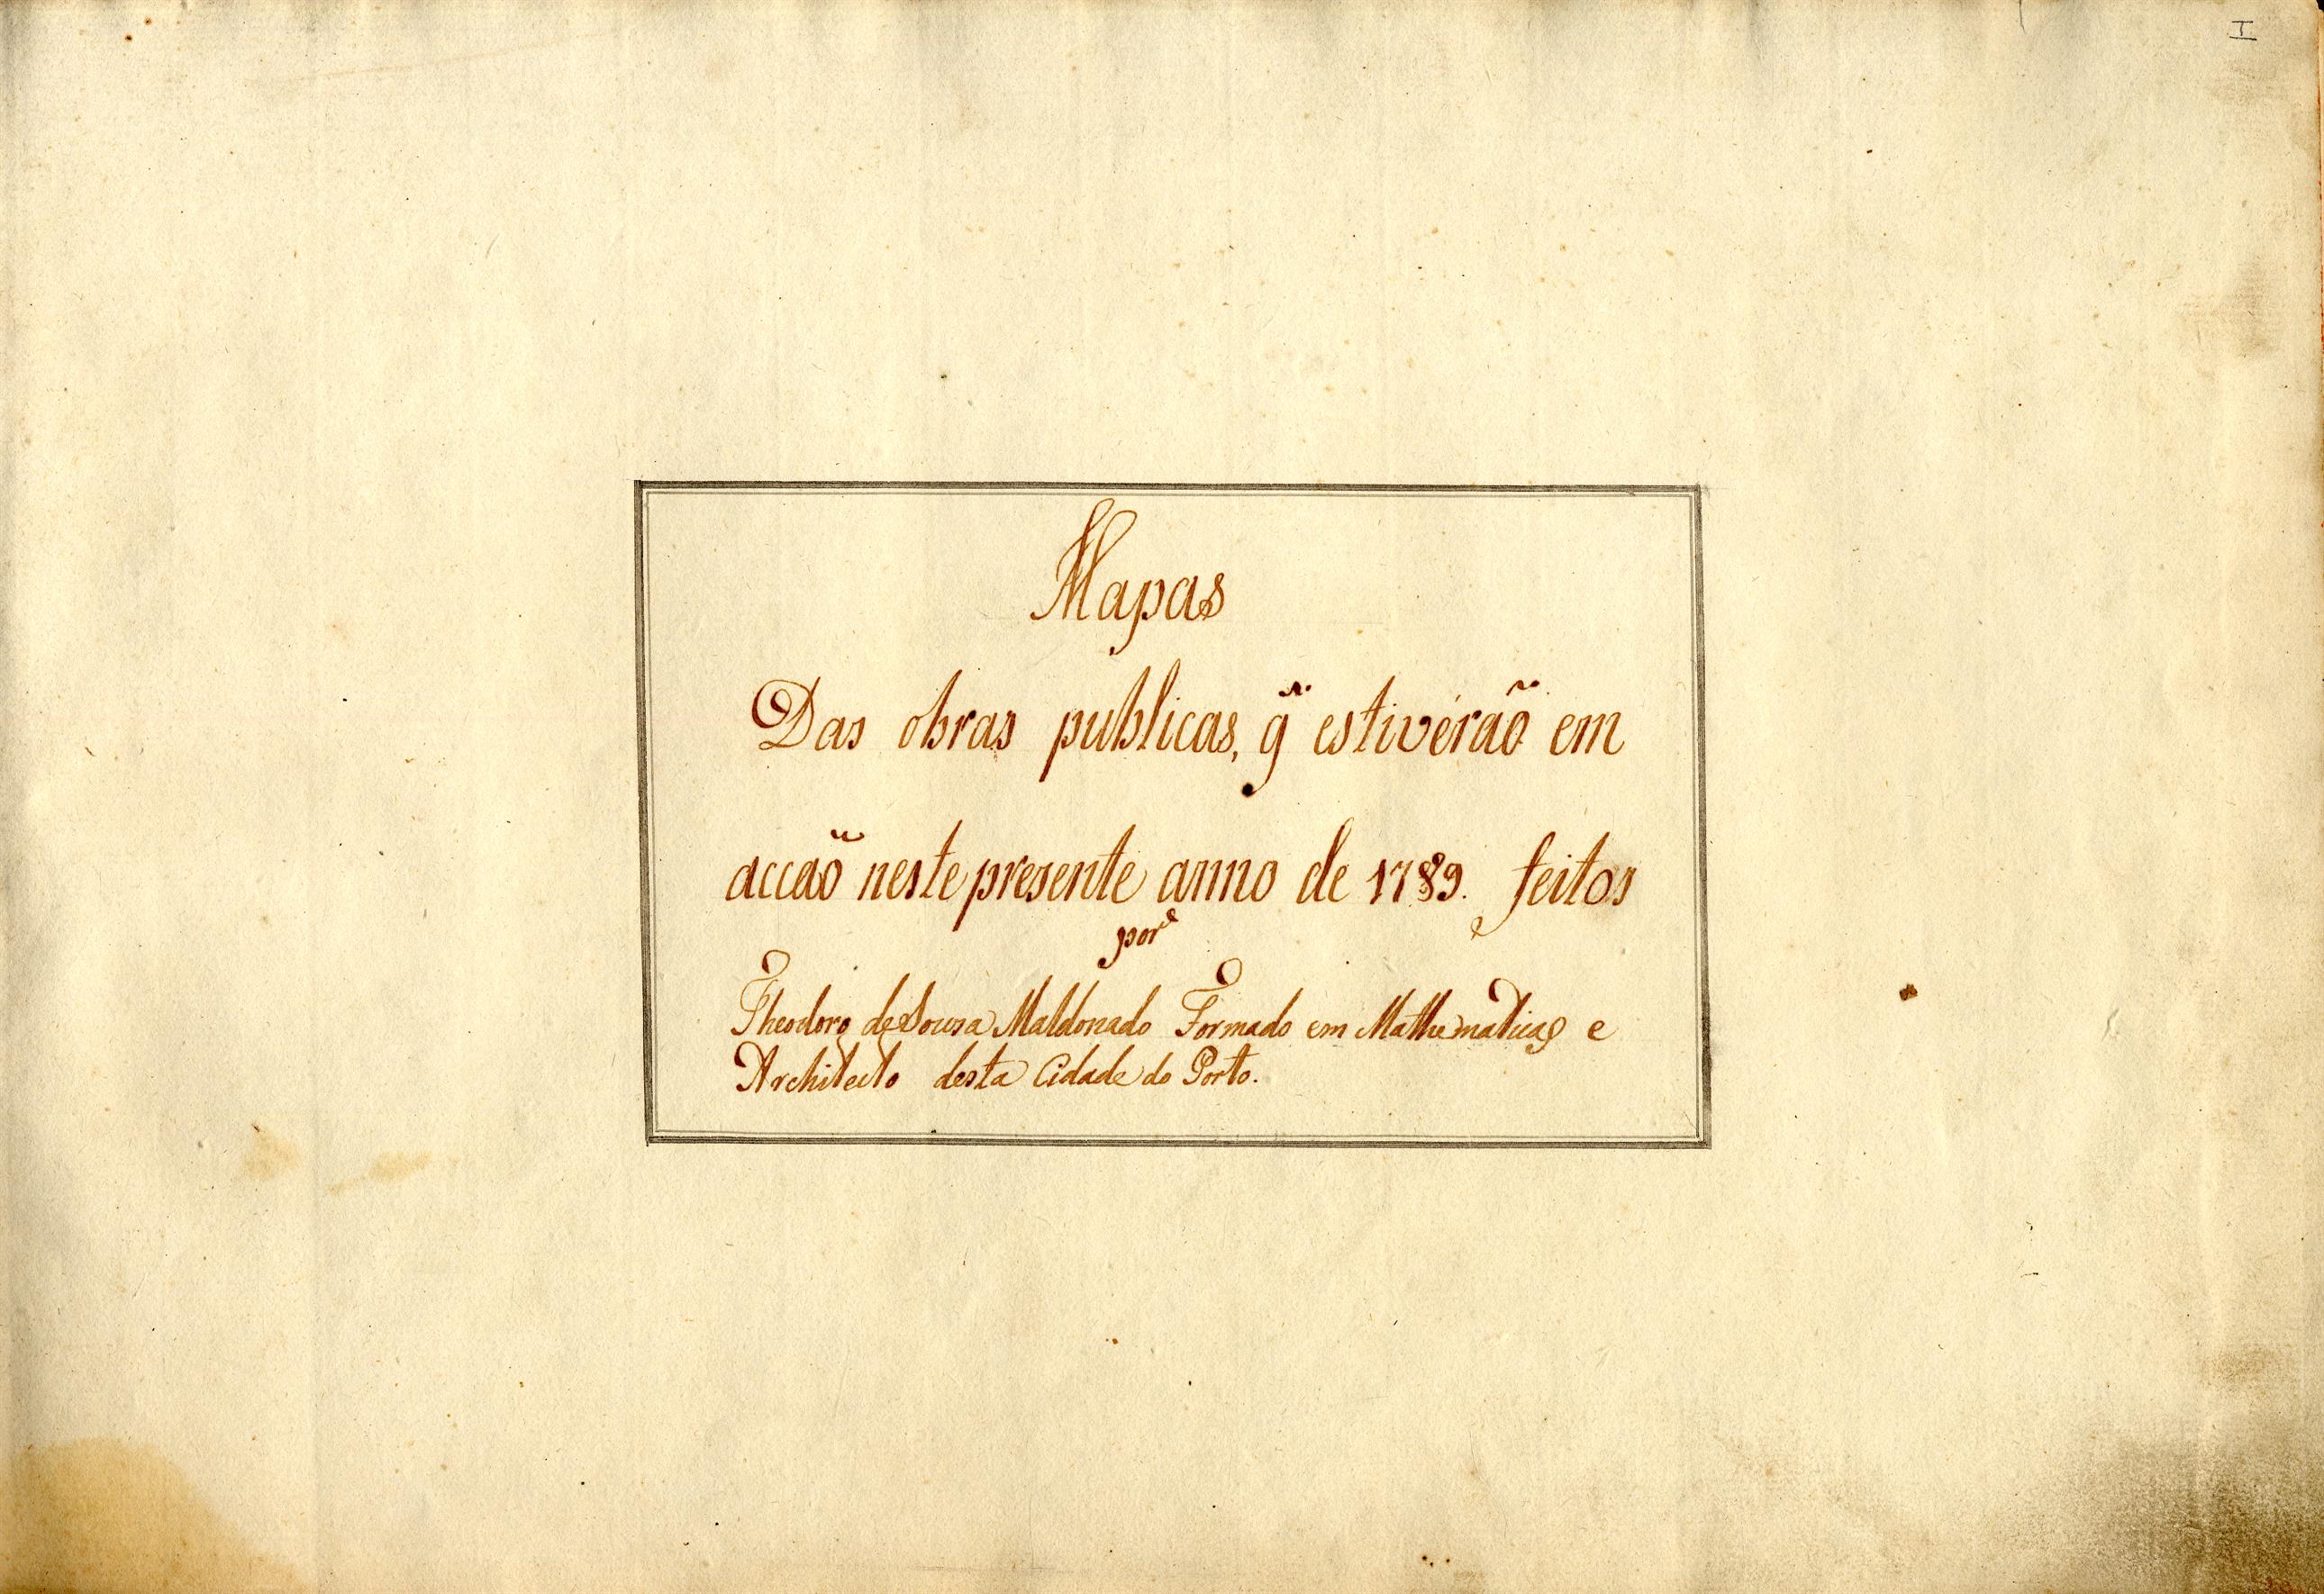 I
Mapas
Das obras publicas, q̃ estiveraõ em
accaõ neste presente anno de 1789. feitos
por
Theodoro de Sousa Maldonado Formado em Mathematica e
Architecto desta Cidade do Porto.